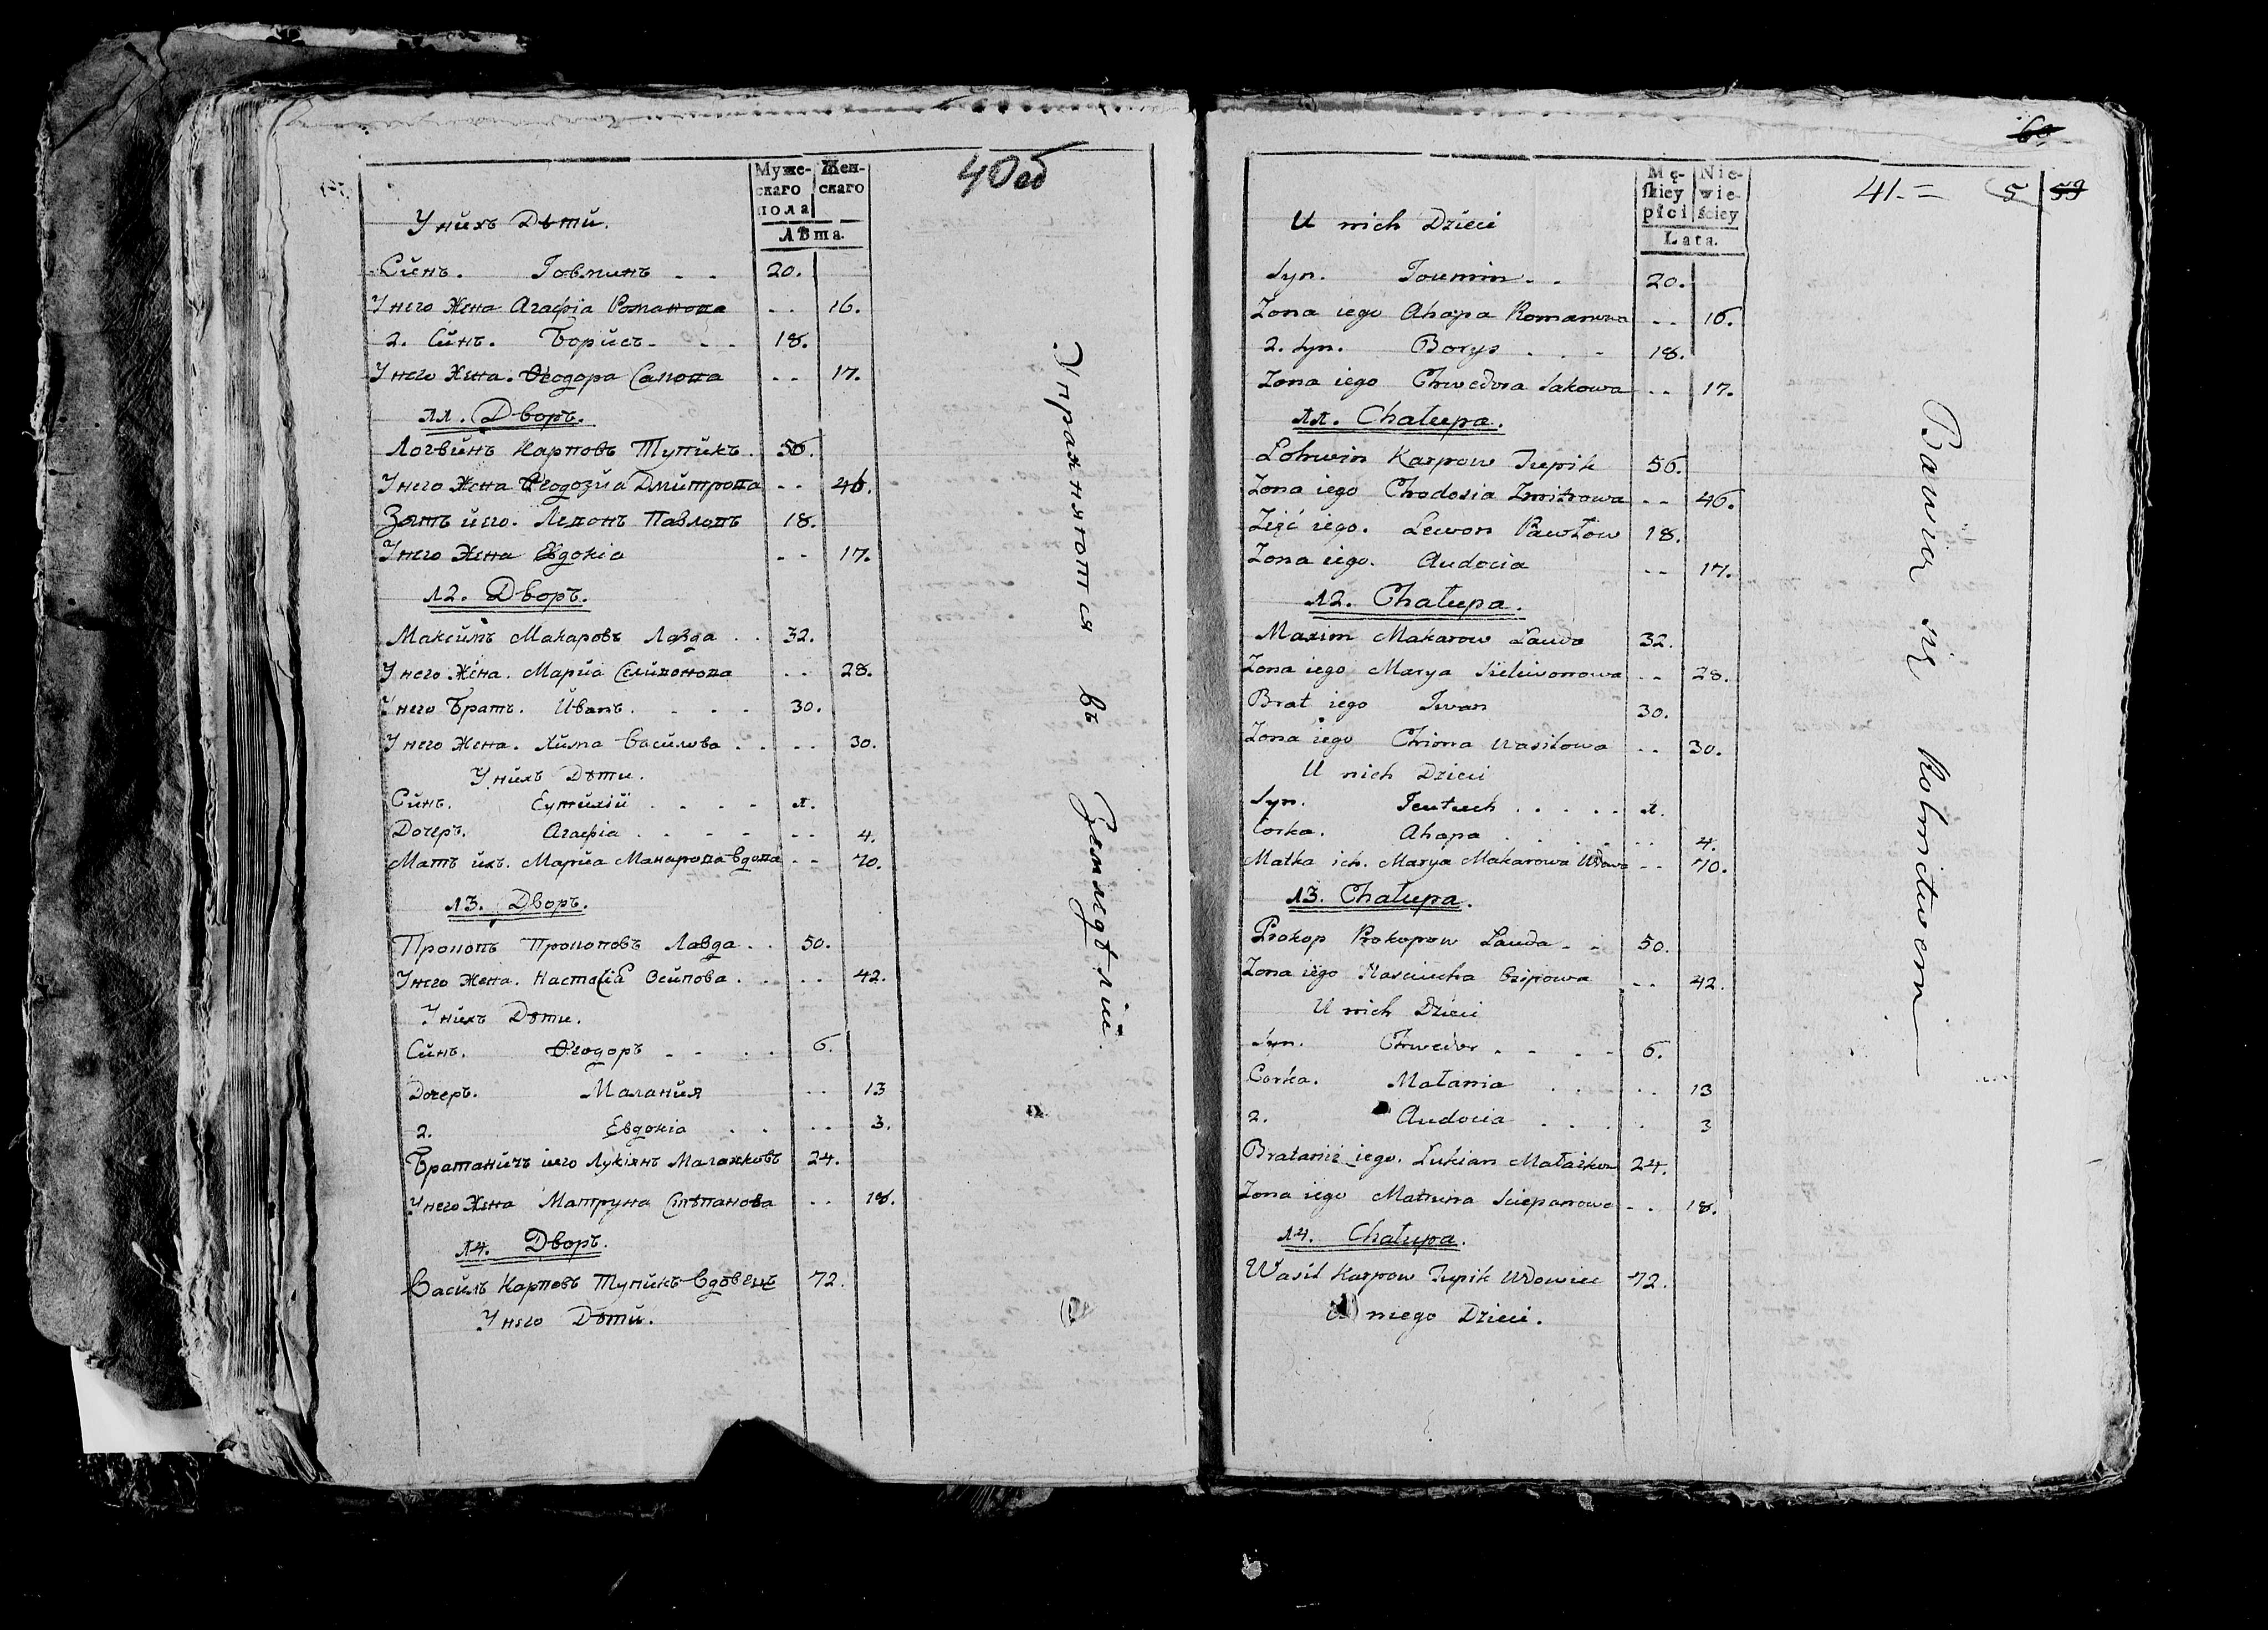 40 об
Муже-
скаго
пола
Жен-
скаго
Лѣта.
У нихъ Дѣти.
Синъ. Іовминъ - - 20.
У него Жена Агафіа Романова - - 16.
2. Синъ. Борисъ - - - 18.
У него Жена. Ѳеодора Сакова - - 17.
11. Дворъ.
Логвинъ Карповъ Тупикъ. 56.
У него Жена Ѳеодозиа Дмитрова - - 46.
Зять иего. Левонъ Павловъ 18.
У него Жена Евдокіа - - 17.
12. Дворъ.
Максимъ Макаровъ Лавда . . 32.
У него Жена. Мариа Селивонова - - 28.
У него Братъ. Иванъ. - - - 30.
У него Жена. Хима Василова . . - - 30.
У нихъ Дѣти.
Синъ. Еутихій . - - - 1.
Дочеръ. Агафіа . - - - - - 4.
Мать ихъ. Мариа Макарова вдова - - 70.
13. Дворъ.
Прокопъ Прокоповъ Лавда . . 50.
У него Жена. Настасіа Осипова . - - - 42.
У нихъ Дѣти.
Синъ. Ѳеодоръ - - . . 6.
Дочеръ. Малания - - 13
2. Евдокіа . . - - 3.
Братаничъ иего Лукіянъ Малажковъ 24.
У него Жена Матруна Стѣпанова - - 18.
14. Дворъ.
Василь Карповъ Тупикъ Вдовецъ 72.
У него Дѣти.
Упражняются въ Земледѣліи.
60
41.= 5 59
Mę-
skiey
płci
Nie-
wie-
ściey
Lata.
U nich Dzieci
Syn. Joumin - - 20.
Zona iego Ahapa Romanowa - - 16.
2. Syn. Borys . . - 18.
Zona iego Chwedora Sakowa - - 17.
11. Chałupa.
Lohwin Karpow Tupik 56.
Zona iego Chodosia Zmitrowa - - 46.
Zięć iego. Lewon Pawłow 18.
Zona iego. Audocia - - 17.
12. Chałupa.
Maxim Makarow Lauda 32.
Zona iego Marya Sieliwonowa - - 28.
Brat iego Iwan 30.
Zona iego Chima Wasilowa - - 30.
U nich Dzieci
Syn. Jeutuch . . . - - 1.
Corka. Ahapa . . . - - 4.
Matka ich. Marya Makarowa Wdowa - - 70.
13. Chałupa.
Prokop Prokopow Lauda - - 50.
Zona iego Nasciucha Osipowa - - 42.
U nich Dzieci
Syn. Chwedor . - - - 6.
Corka. Małania . . - - 13
2. Audocia . . . . 3
Bratanic iego. Lukian Małażkow 24.
Zona iego Matruna Sciepanowa - - 18.
14. Chałupa.
Wasil Karpow Tupik Wdowiec 72.
U niego Dzieci.
Bawią się Rolnictwem